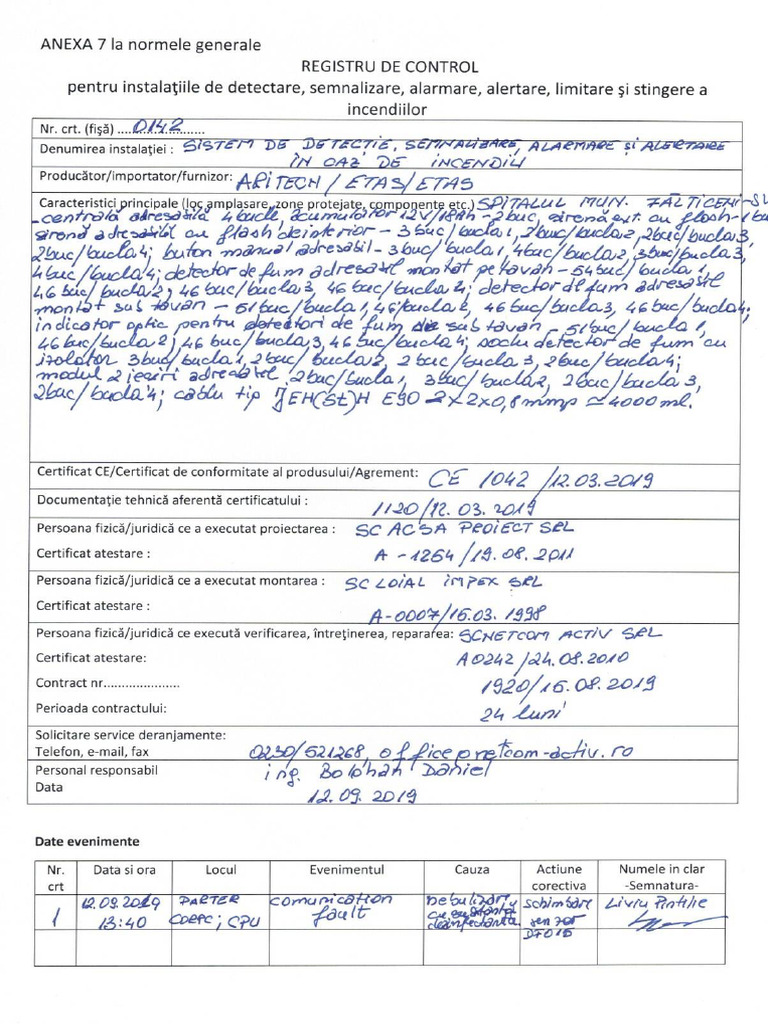 ANEXA 7 la normele generale
REGISTRU DE CONTROL
pentru instalaţiile de detectare, semnalizare, alarmare, alertare, limitare şi stingere a
incendiilor
Nr. crt. (fişă) ....0142............
Denumirea instalaţiei : SISTEM DE DETECTIE, SEMNALIZARE, ALARMARE şi ALERTARE
IN CAZ DE INCENDIU
Producător/importator/furnizor: ARITECH / ETAS/ETAS
Caracteristici principale (loc amplasare, zone protejate, componente etc.) SPITALUL MUN. FĂLTICENI-SV
-centrală adresabilă 4 bucle, acumulator 12V/18Ah-2buc, sirenă ext. cu flash-1buc
sirenă adresabilă cu flash de interior - 3buc/bucla1, 2buc/bucla2, 2buc/bucla3,
2buc/bucla4; buton manual adresabil-3buc/bucla1, 4buc/bucla2, 3buc/bucla3,
4buc/bucla4; detector de fum adresabil montat pe tavan-54buc/bucla1,
46buc/bucla2, 46buc/bucla3, 46buc/bucla4; detector de fum adresabil
montat sub tavan - 51buc/bucla1, 46/bucla2, 46buc/bucla3, 46buc/bucla4;
indicator optic pentru detectori de fum de sub tavan-51buc/bucla1,
46buc/bucla2; 46buc/bucla3, 46buc/bucla4; soclu detector de fum cu
izolator 3buc/bucla1, 2buc/bucla2, 2buc/bucla3, 2buc/bucla4;
modul 2 ieşiri adresabil 2buc/bucla1, 3buc/bucla2, 2buc/bucla3,
2buc/bucla4; cablu tip JEH(St)H E90 2x2x0,8mmp ≃4000ml.
Certificat CE/Certificat de conformitate al produsului/Agrement: CE 1042 /12.03.2019
Documentaţie tehnică aferentă certificatului : 1120/12.03.2019
Persoana fizică/juridică ce a executat proiectarea : SC ACSA PROIECT SRL
Certificat atestare : A-1264/19.08.2011
Persoana fizică/juridică ce a executat montarea : SC LOIAL IMPEX SRL
Certificat atestare : A-0007/16.03.1998
Persoana fizică/juridică ce execută verificarea, întreţinerea, repararea: SCNETCOM ACTIV SRL
Certificat atestare: A0242/24.08.2010
Contract nr.................... 1920/16.08.2019
Perioada contractului: 24 luni
Solicitare service deranjamente:
Telefon, e-mail, fax 0230/521268, office@netcom-activ.ro
Personal responsabil ing. Bolohan Daniel
Data 12.09.2019
Date evenimente
Nr. crt Data si ora Locul Evenimentul Cauza Actiune corectiva Numele in clar -Semnatura-
1 12.09.2019 13:40 PARTER COEPC; CPU comunication fault nebulizare cu substanta dezinfectanta schimbare senzor Liviu Pintilie